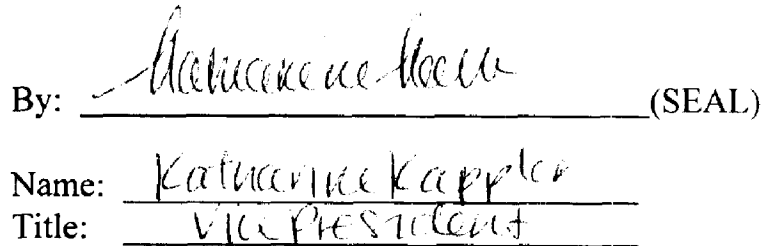 By: (SEAL)
Name: Katharine Kappler
Title: Vice President